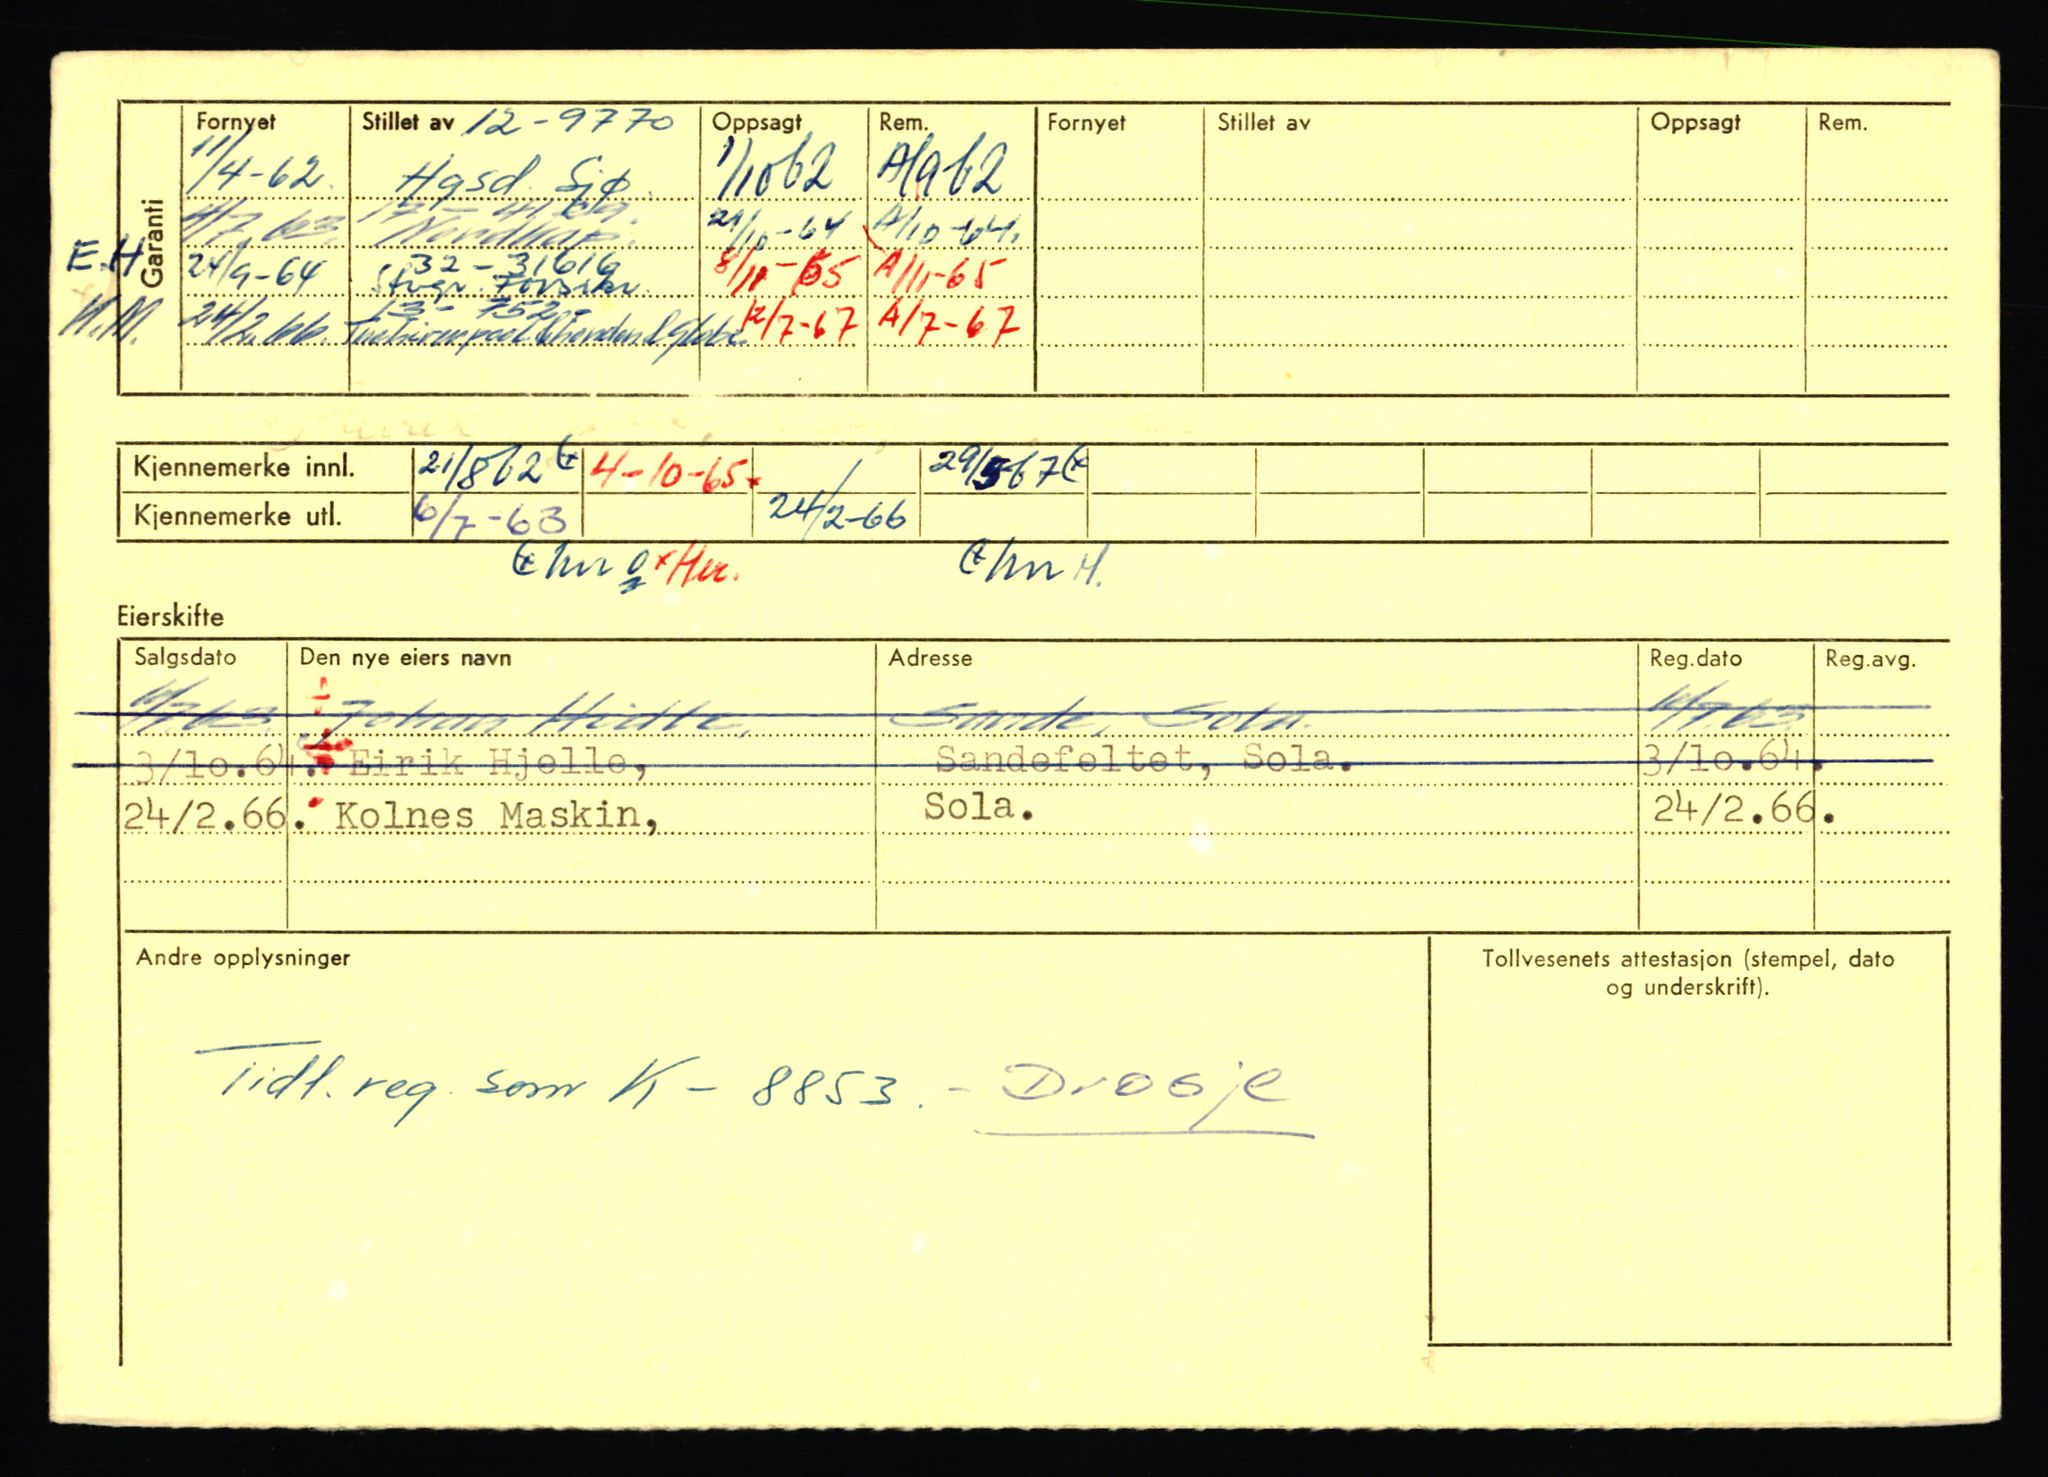 Garanti
Fornyet Stillet av 12-9770 Oppsagt Rem. Fornyet Stillet av Oppsagt Rem.
11/4-62. Hgsd. Sjø. 1/10 62 A/9 62
4/7.63. Nordkap. 24/10-64 A/10-64.
E.H 24/9-64 32-31616 8/11-65 A/11-65
Stvgr. Forsikr.
N.M. 24/2.66. 13-752- 12/7-67 A/7-67
Kjennemerke innl. 21/8 62 4-10-65 29/5 67
Kjennemerke utl. 6/7-63 24/2-66
Eierskifte
Salgsdato Den nye eiers navn Adresse Reg.dato Reg.avg.
Sande, Sola.
3/10.64. Eirik Hjelle, Sandefeltet, Sola. 3/10.64.
24/2.66. Kolnes Maskin, Sola. 24/2.66.
Andre opplysninger
Tollvesenets attestasjon (stempel, dato
og underskrift).
Tidl. reg. som K-8853. - Drosje